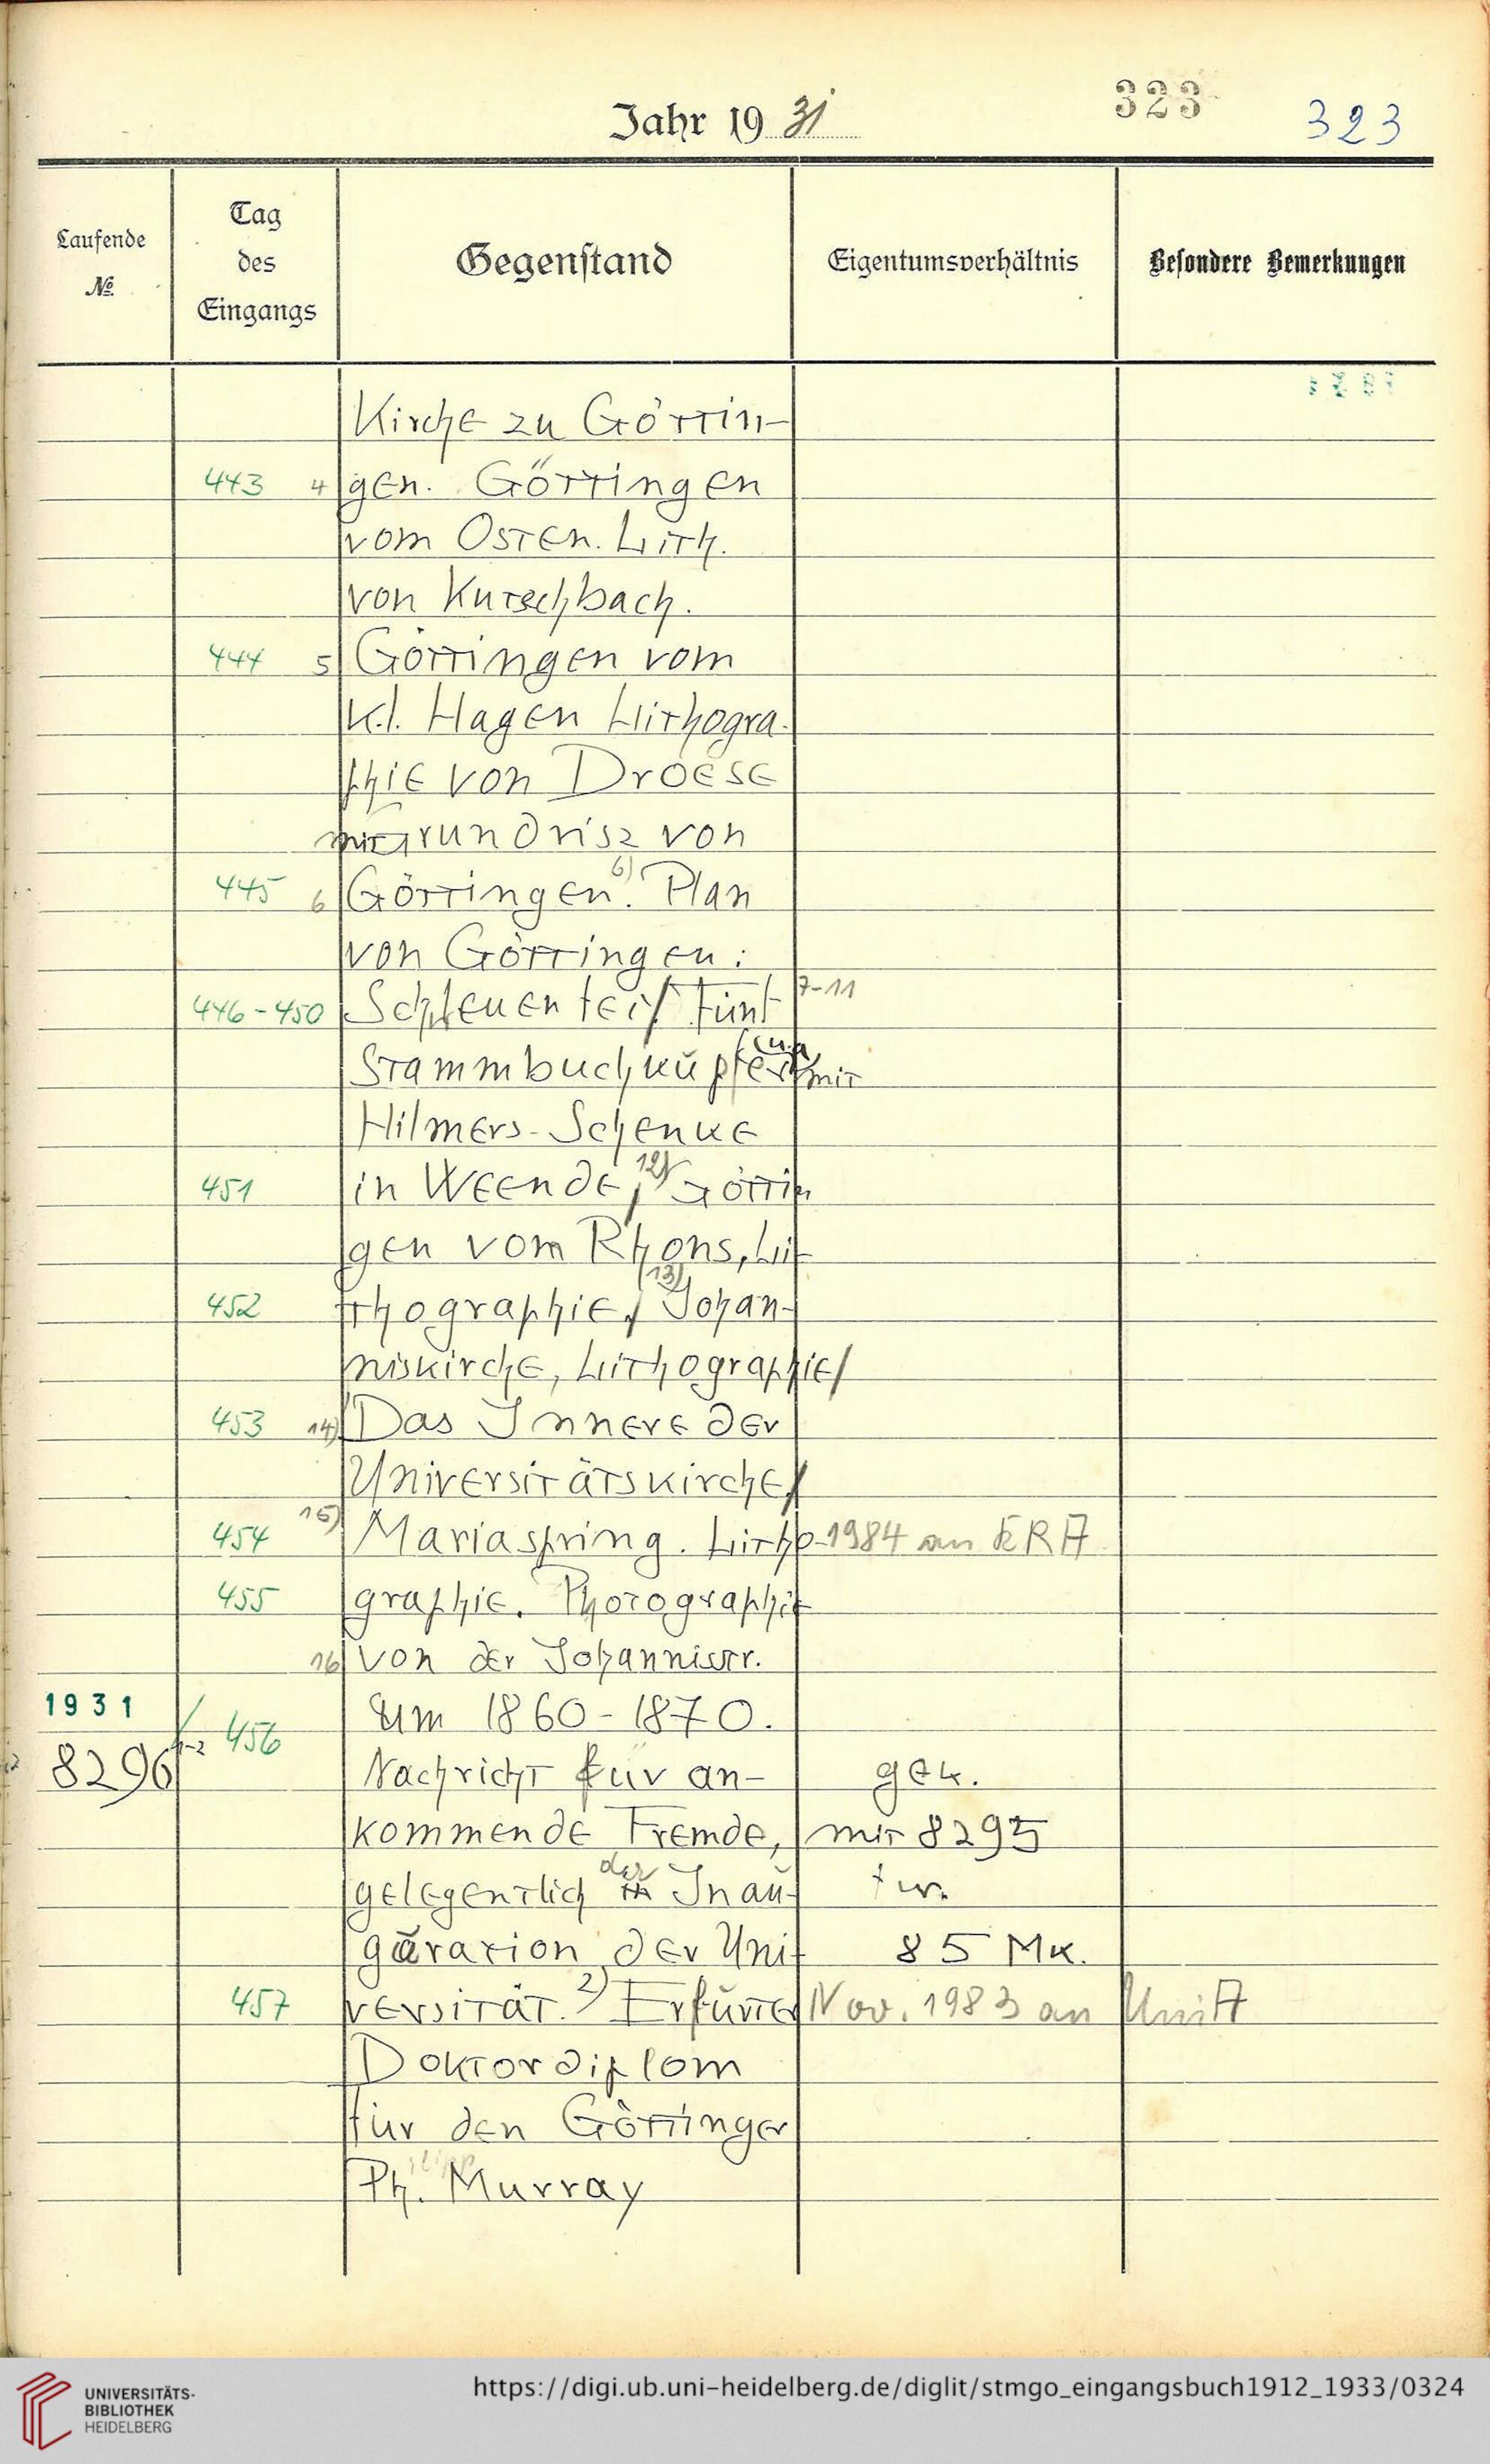 Jahr 1931
323
323
Laufende
№
Tag
des
Eingangs
Gegenstand
Eigentumsverhältnis
Besondere Bemerkungen
Kirche zu Göttin-
443 4 gen. Göttingen
vom Osten. Lith.
von Kutschbach.
444 5 Göttingen vom
Kl. Hagen Lithogra-
phie von Droese
mit Grundrisz von
445 6 Göttingen. 6) Plan
von Göttingen:
446-450 Fünf 7-11
Stammbuchkupfer (u.a. mit
Hilmers-Schenke
451 in Weende, 12) Göttin
gen vom Rhons, Li-
452 thographie, 13) Johan-
niskirche, Lithographie/
453 14) Das Innere der
Universitätskirche/
454 15) Mariaspring. Litho- 1984 an ERA
455 graphie. Photographie
16 von der Johannisstr.
um 1860-1870.
1931
8296 1-2 456 Nachricht für an- gek.
kommende Fremde, mit 8295
gelegentlich der Inau- f. w.
guration der Uni- 85 Mk.
457 versität. 2) Erfurter Nov. 1983 an UniA
Doktordiplom
für den Göttinger
Ph. Murray
UNIVERSITÄTS-
BIBLIOTHEK
HEIDELBERG
https://digi.ub.uni-heidelberg.de/diglit/stmgo_eingangsbuch1912_1933/0324